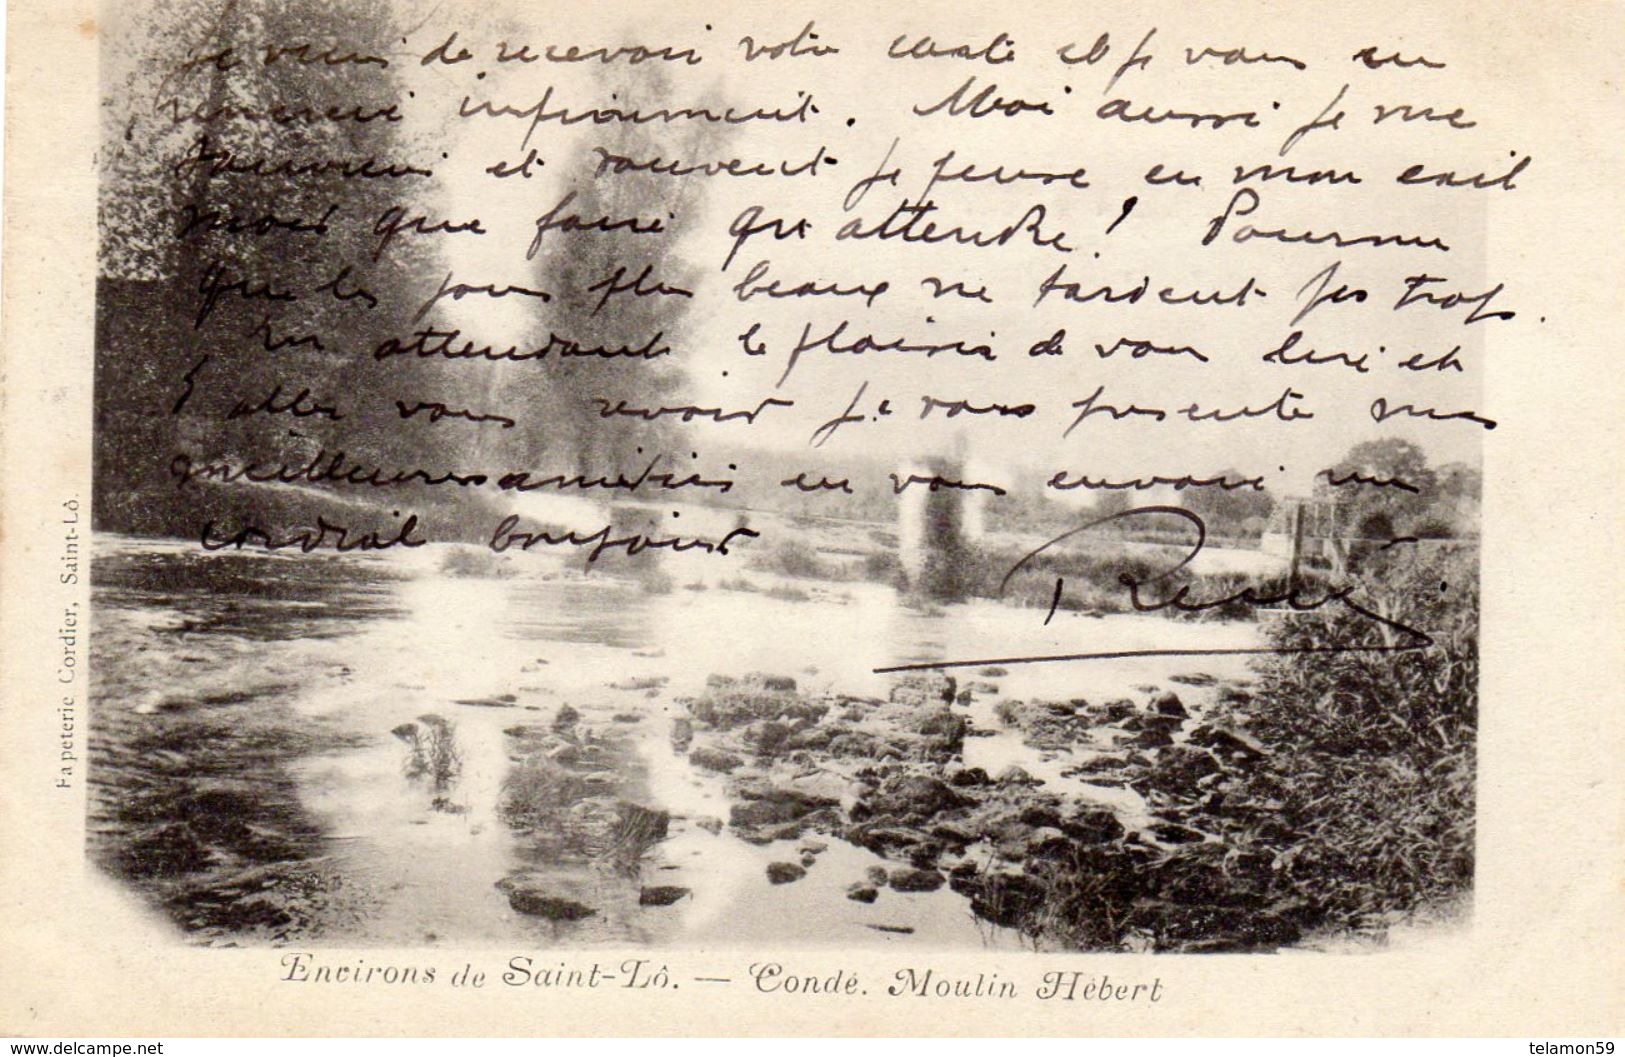 Je viens de recevoir votre carte et je vous en
remercie infiniment. Moi aussi je me
souviens et souvent je pense en mon exil
mais que faire qu'attendre! Pourvu
que les jours plus beaux ne tardent pas trop.
En attendant le plaisir de vous lire et
d'aller vous revoir je vous presente mes
meilleures amitiés en vous envoie un
cordial bonjour
Papeterie Cordier, Saint-Lô.
Environs de Saint-Lô. — Condé. Moulin Hébert
www.delcampe.net
telamon59